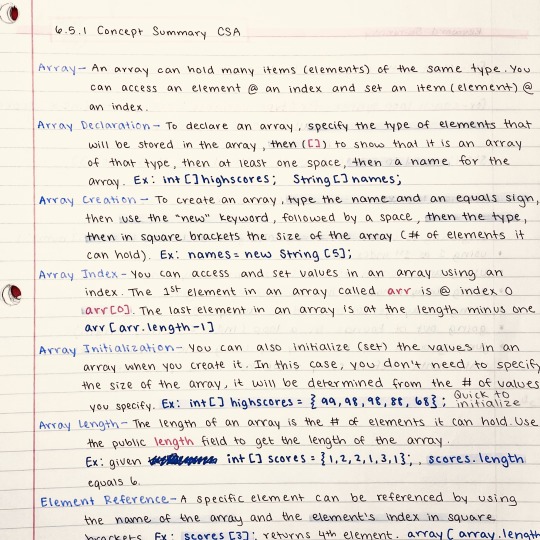 6.5.1 Concept Summary CSA
Array - An array can hold many items (elements) of the same type. You
can access an element @ an index and set an item (element) @
an index.
Array Declaration - To declare an array, specify the type of elements that
will be stored in the array, then ([]) to show that it is an array
of that type, then at least one space, then a name for the
array. Ex: int [] highscores; String[] names;
Array Creation - To create an array, type the name and an equals sign,
then use the "new" keyword, followed by a space, then the type,
then in square brackets the size of the array (# of elements it
can hold). Ex: names = new String [5];
Array Index - You can access and set values in an array using an
index. The 1st element in an array called arr is @ index 0
arr[0]. The last element in an array is at the length minus one
arr [arr.length-1]
Array Initialization - You can also initialize (set) the values in an
array when you create it. In this case, you don't need to specify
the size of the array, it will be determined from the # of values
you specify. Ex: int[] highscores = {99, 98, 98, 88, 68}; Quick to
initialize
Array Length - The length of an array is the # of elements it can hold. Use
the public length field to get the length of the array.
Ex: given int [] scores = {1,2,2,1,3,1}; , scores.length
equals 6.
Element Reference - A specific element can be referenced by using
the name of the array and the element's index in square
brackets. Ex: scores [3]; returns 4th element. array [array.length